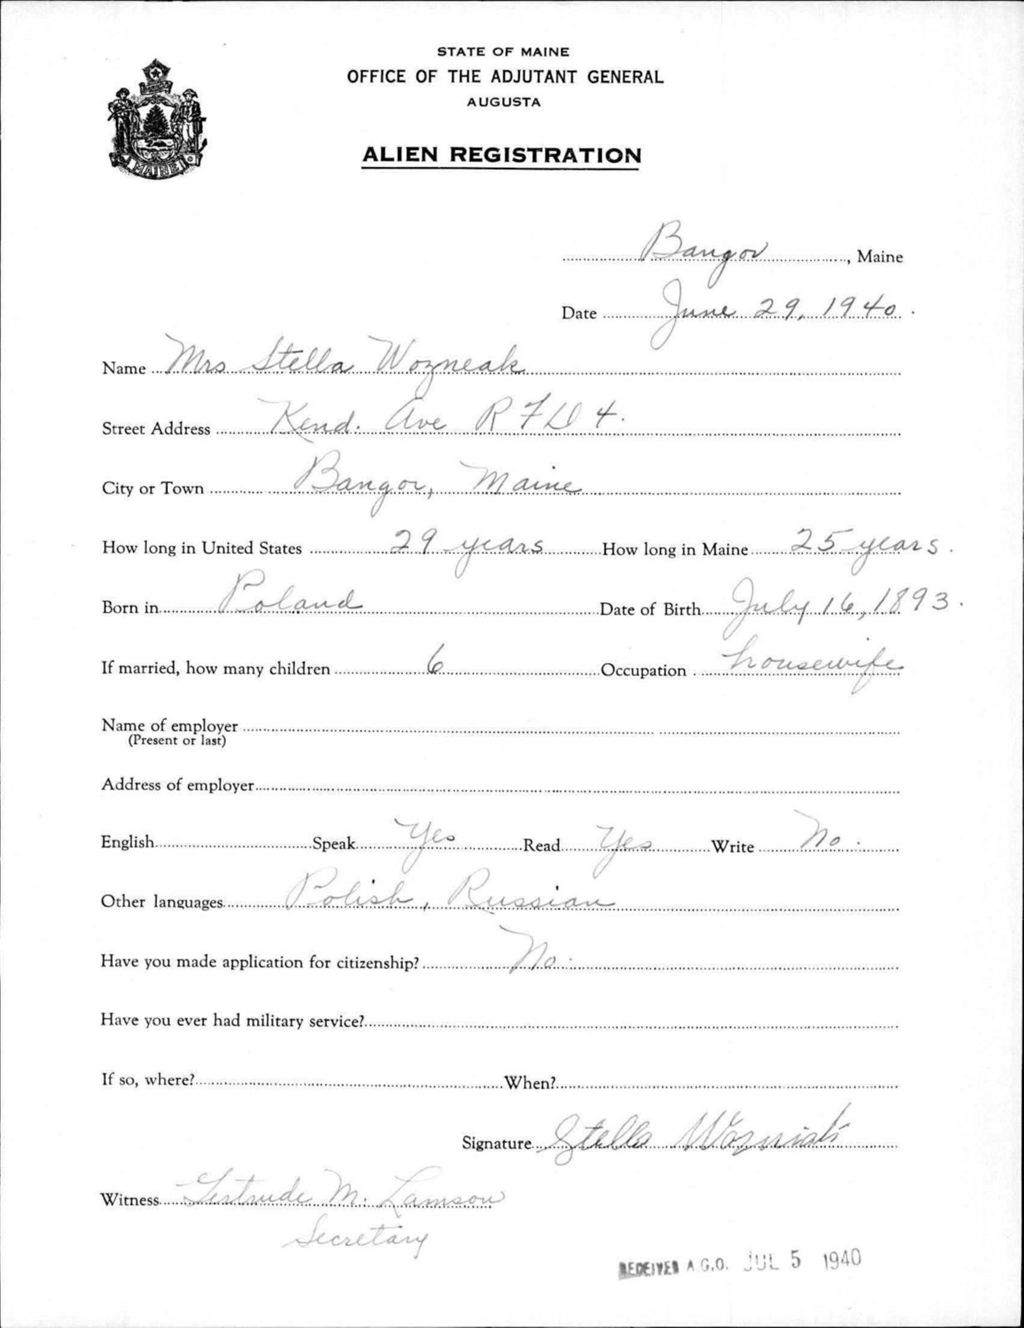 STATE OF MAINE
OFFICE OF THE ADJUTANT GENERAL
AUGUSTA
ALIEN REGISTRATION
MAINE
Bangor, Maine
Date June 29, 1940.
Name Mrs Stella Wozneak
Street Address Kend. Ave R F D 4.
City or Town Bangor, Maine
How long in United States 29 years How long in Maine 25 years.
Born in Poland Date of Birth July 16, 1893.
If married, how many children 6 Occupation housewife
Name of employer
(Present or last)
Address of employer
English Speak Yes Read Yes Write No.
Other languages Polish, Russian
Have you made application for citizenship? No.
Have you ever had military service?
If so, where? When?
Signature Stella Wozniak
Witness Gertrude M. Lamson
Secretary
RECEIVED A.G.O. JUL 5 1940